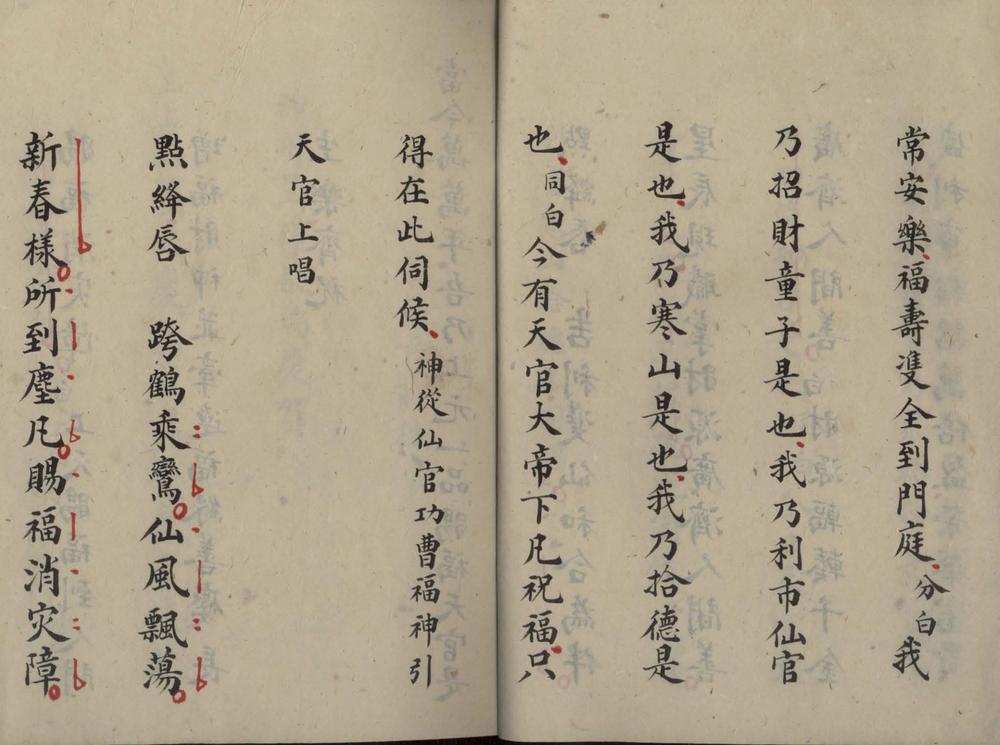 常安樂福壽雙全到門庭分白我
乃招財童子是也我乃利市仙官
是也我乃寒山是也我乃拾德是
也同白今有天官大帝下凡祝福只
得在此伺候神從仙官功曹福神引
天官上唱
點絳唇　跨鶴乘鸞仙風飄蕩
新春樣所到塵凡賜福消灾障